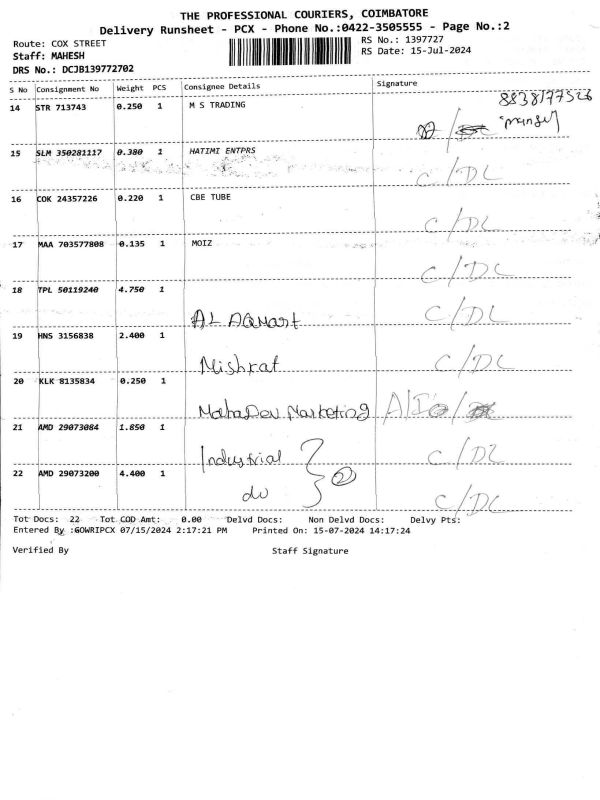 THE PROFESSIONAL COURIERS, COIMBATORE
Delivery Runsheet - PCX - Phone No.:0422-3505555 - Page No.:2
Route: COX STREET RS No.: 1397727
Staff: MAHESH RS Date: 15-Jul-2024
DRS No.: DCJB139772702
S No Consignment No Weight PCS Consignee Details Signature
14 STR 713743 0.250 1 M S TRADING 8838177526
15 SLM 350281117 0.380 1 HATIMI ENTPRS
C/DL
16 COK 24357226 0.220 1 CBE TUBE
C/DL
17 MAA 703577808 0.135 1 MOIZ
C/DL
18 TPL 50119240 4.750 1
AL AQmart C/DL
19 HNS 3156838 2.400 1
Mishrat C/DL
20 KLK 8135834 0.250 1
MahaDev Marketing
21 AMD 29073084 1.850 1
Industrial C/DL
22 AMD 29073200 4.400 1 2
do C/DL
Tot Docs: 22 Tot COD Amt: 0.00 Delvd Docs: Non Delvd Docs: Delvy Pts:
Entered By :GOWRIPCX 07/15/2024 2:17:21 PM Printed On: 15-07-2024 14:17:24
Verified By Staff Signature